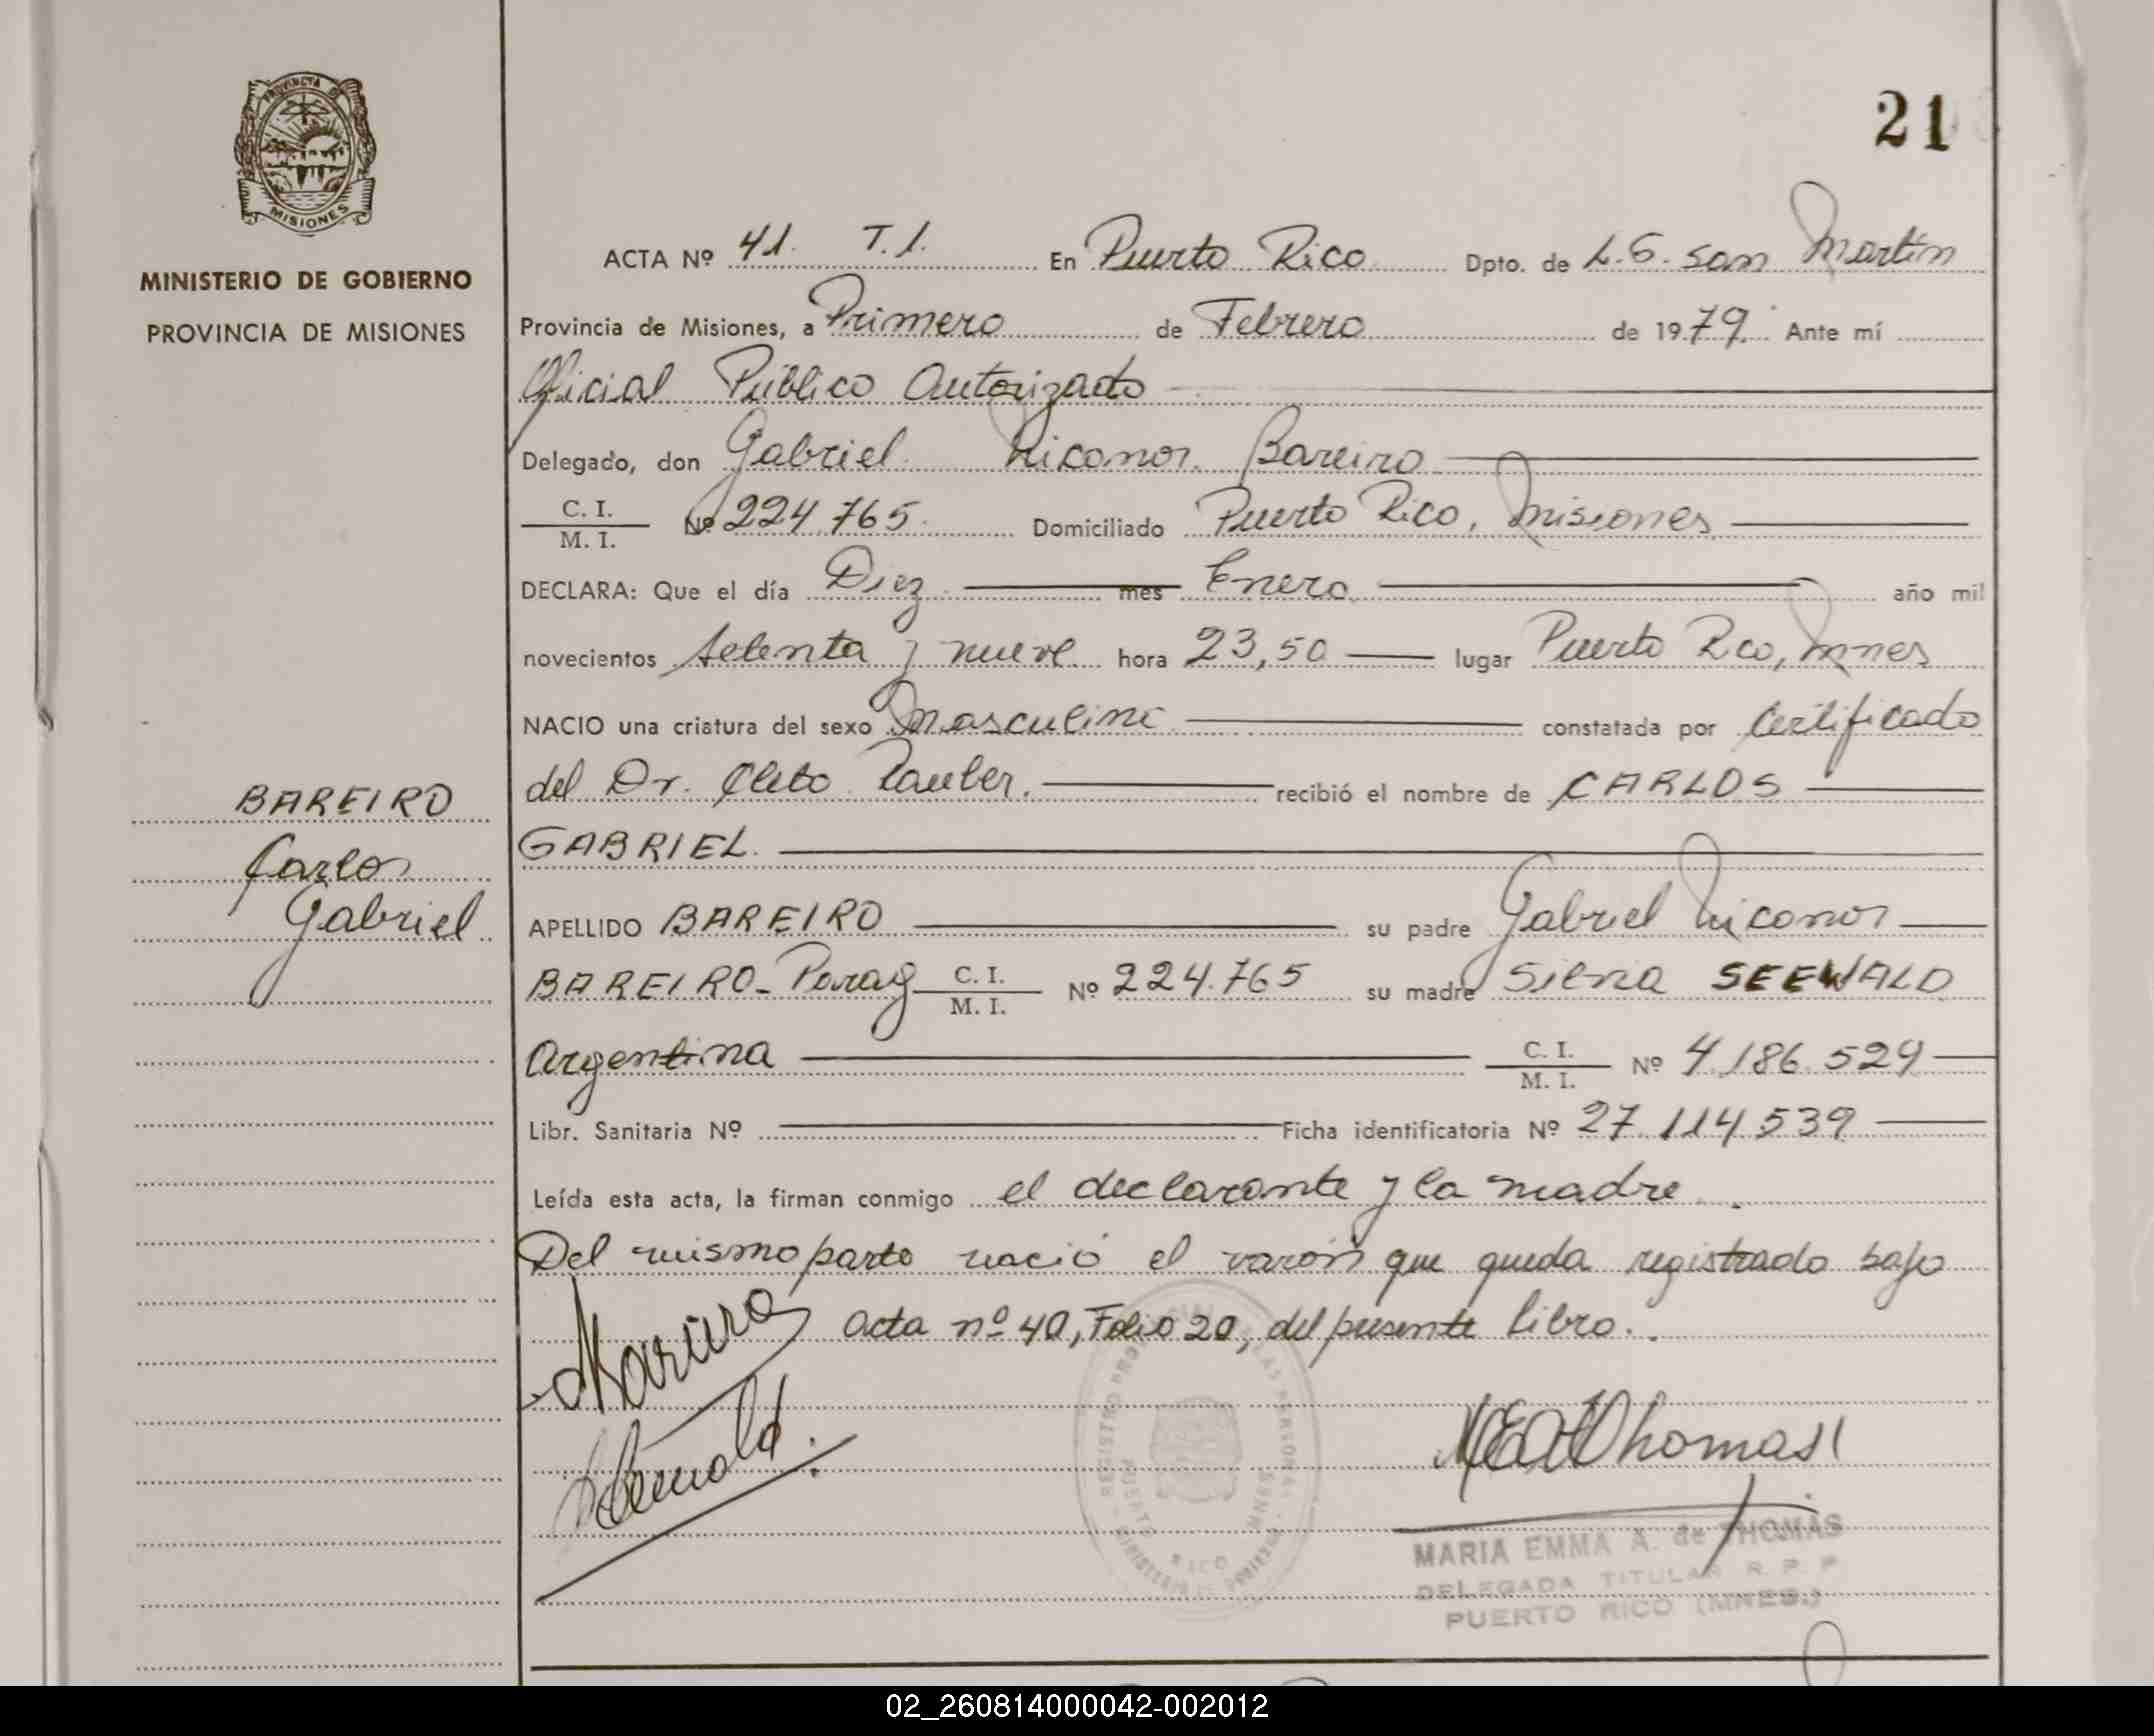 21
PROVINCIA DE
MISIONES
MINISTERIO DE GOBIERNO
PROVINCIA DE MISIONES
BAREIRO
Carlos
Gabriel
ACTA Nº 41. T.1. En Puerto Rico Dpto. de L.G. San Martín
Provincia de Misiones, a Primero de Febrero de 1979. Ante mí
Oficial Público Autorizado
Delegado, don Gabriel Niconor Bareiro
C. I.
M. I. Nº 224.765. Domiciliado Puerto Rico, Misiones
DECLARA: Que el día Diez mes Enero año mil
novecientos setenta y nueve hora 23,50 lugar Puerto Rco, Mnes
NACIO una criatura del sexo Masculino constatada por Certificado
del Dr. Cleto Rauber. recibió el nombre de CARLOS
GABRIEL.
APELLIDO BAREIRO su padre Gabriel Niconor
BAREIRO- Parag C. I. M. I. Nº 224.765 su madre Silvia SEEWALD
Argentina C. I. M. I. Nº 4.186.529
Libr. Sanitaria Nº Ficha identificatoria Nº 27.114.539
Leída esta acta, la firman conmigo el declarante y la madre.
Del mismo parto nació el varón que queda registrado bajo
acta nº 40, Folio 20, del presente libro.
MEAThomas
MARIA EMMA A. de THOMAS
DELEGADA TITULAR R. P. P
PUERTO RICO (MNES.)
02_260814000042-002012